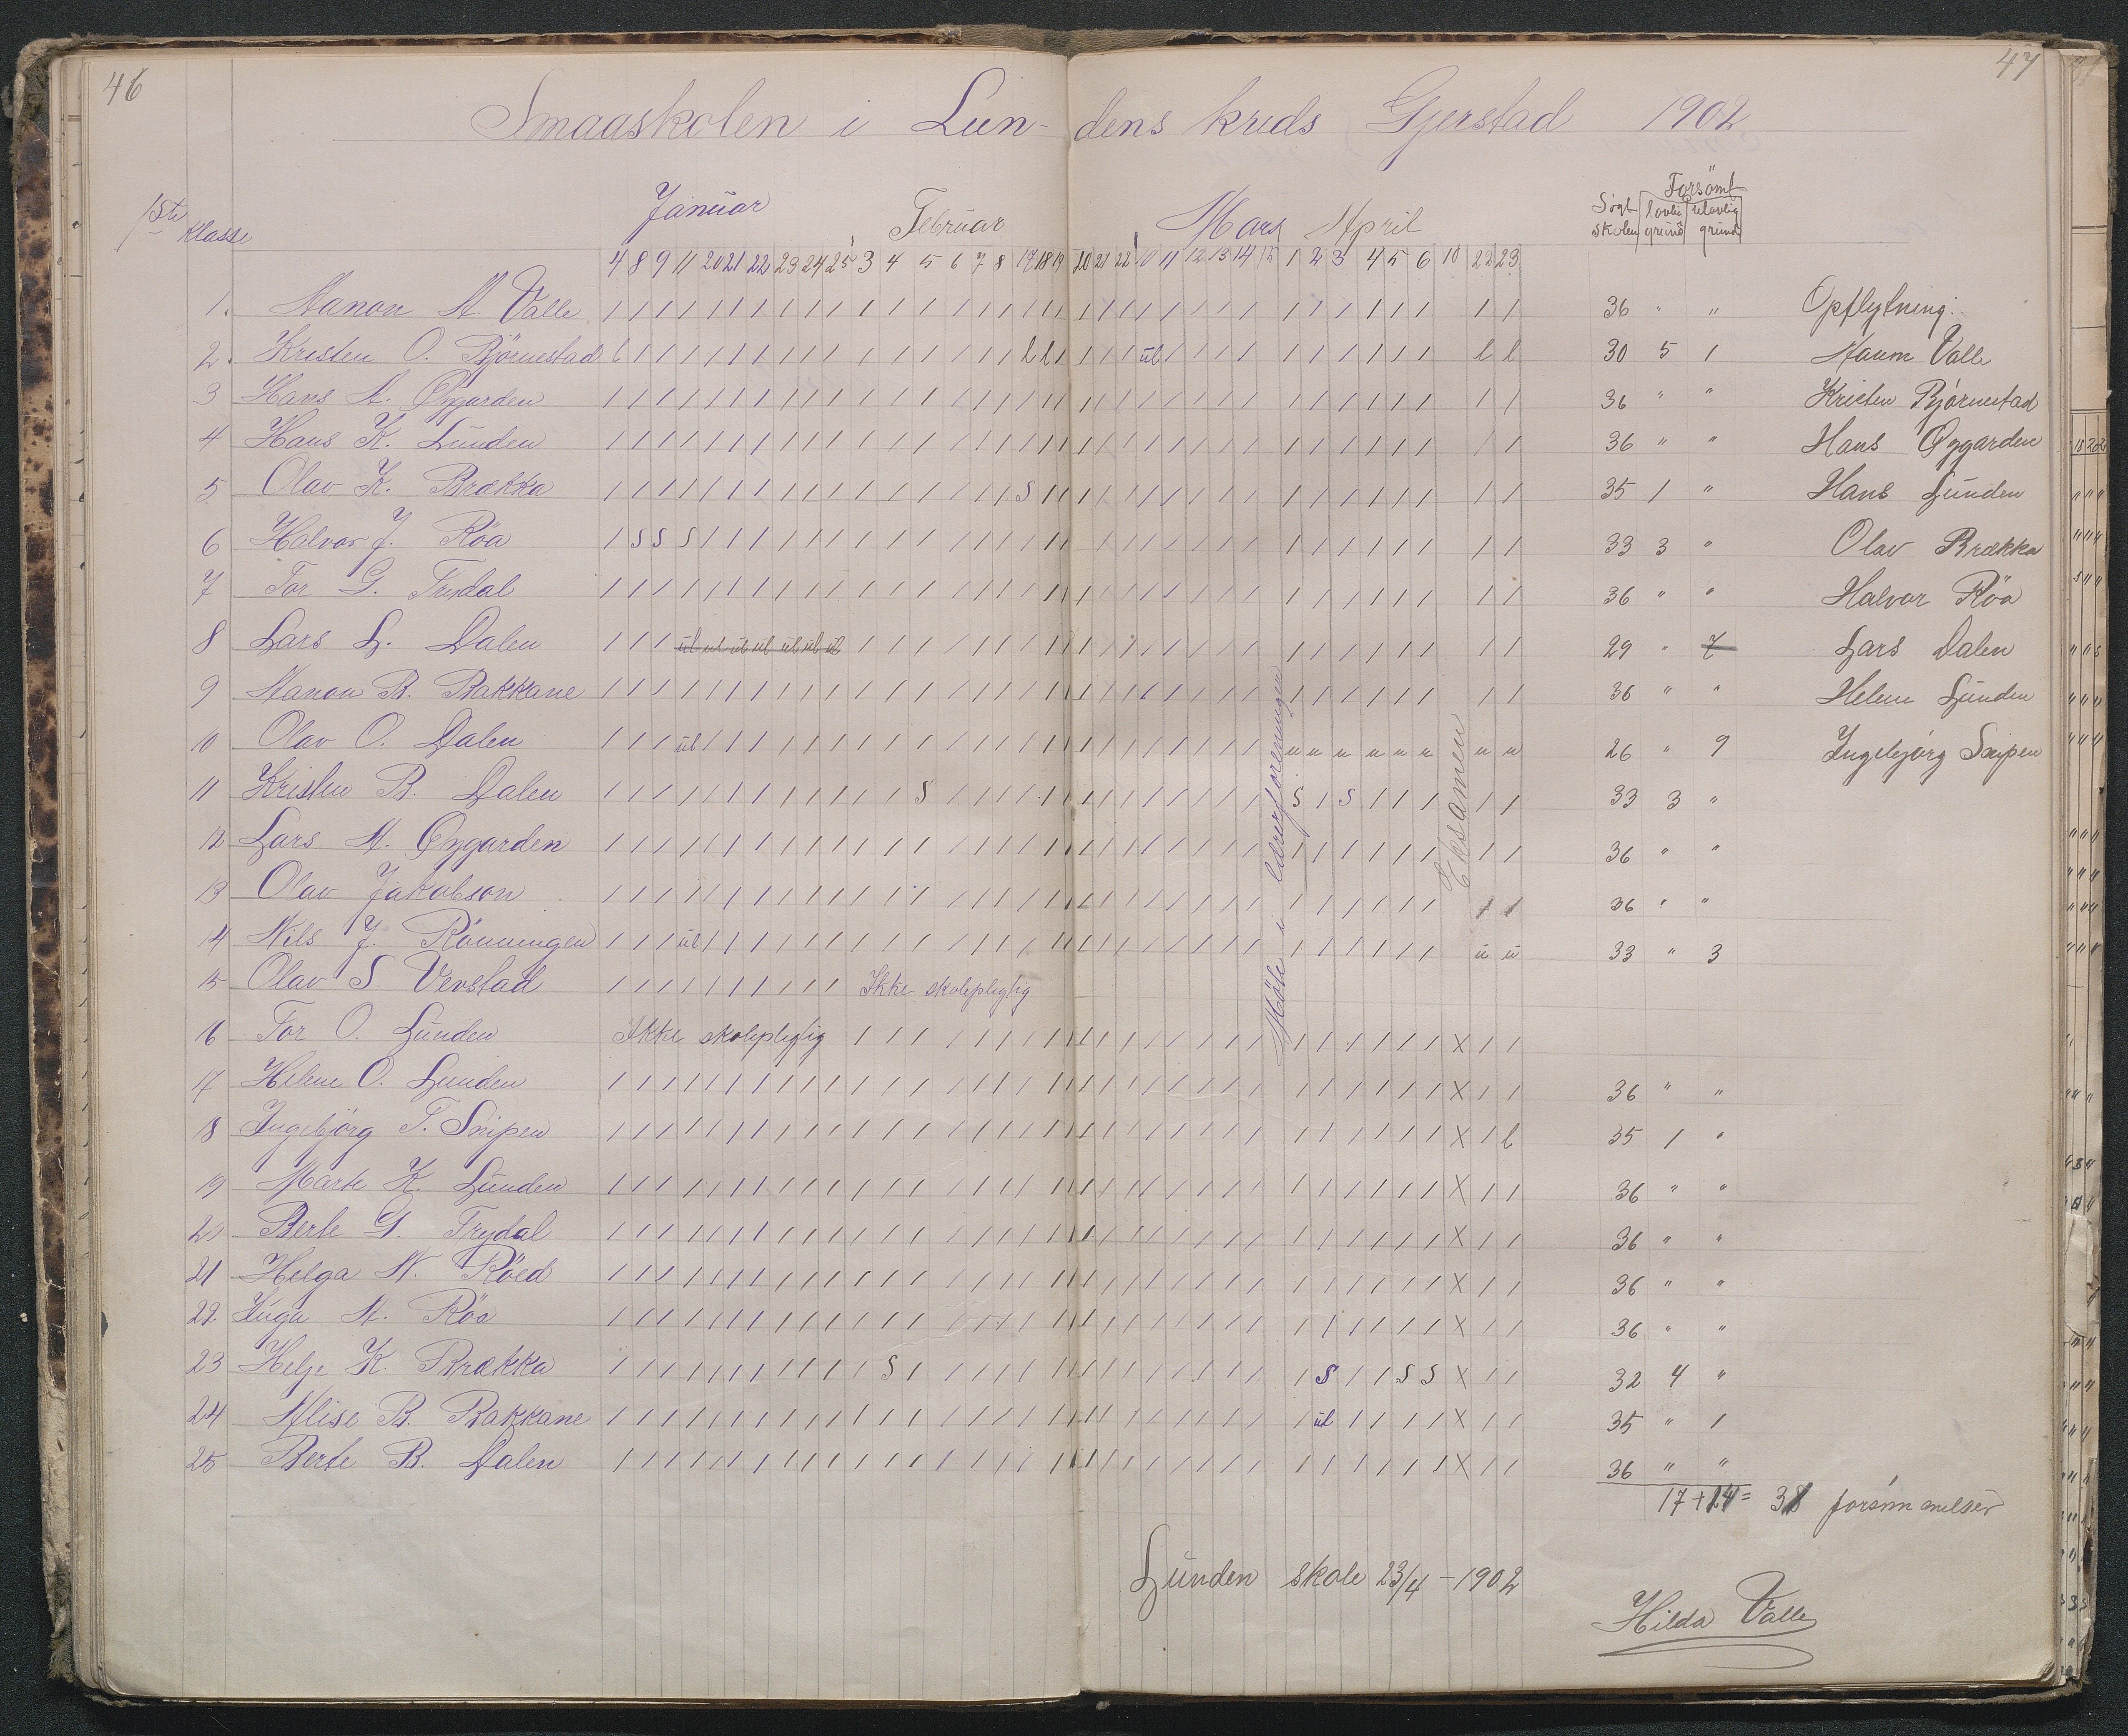 46
47
Smaaskolen i Lundens kreds Gjerstad 1902
1ste Klasse
Januar Februar Mars April
Søgt skolen Forsømt lovlig grund ulovlig grund
4 8 9 11 20 21 22 23 24 25 3 4 5 6 7 8 17 18 19 20 21 22 10 11 12 13 14 15 1 2 3 4 5 6 10 22 23
1. Aanon A. Valle 36 " " Opflytning:
2. Kristen O. Björnestad l l l ul l l 30 5 1 Aanon Valle
3 Hans A. Øygarden 36 " " Kristen Bjørnestad
4 Hans K. Lunden 36 " " Hans Øygarden
5 Olav K. Brække S 35 1 " Hans Lunden
6 Halvor J. Röa S S S 33 3 " Olav Brække
7 Tor G. Trydal 36 " " Halvor Röa
8 Lars L. Dalen ul ul ul ul ul ul ul 29 " 7 Lars Dalen
9 Aanon B. Bakkane 36 " " Helene Lunden
10 Olav O. Dalen ul u u u u u u u u 26 " 9 Ingebjørg Snipen
11 Kristen B. Dalen S S S 33 3 "
12 Lars A. Øygarden 36 " "
13 Olav Jakobson 36 " "
14 Nils J. Rönningen ul u u 33 " 3
15 Olav S. Verstad Ikke skolepligtig
16 Tor O. Lunden Ikke skolepligtig x
17 Helene O. Lunden x 36 " "
18 Ingebjörg T. Snipen x l 35 1 "
19 Marte K. Lunden x 36 " "
20 Berte G. Trydal x 36 " "
21 Helga N. Röed x 36 " "
22. Inga A. Röa x 36 " "
23 Helje K. Brække S S S S x 32 4 "
24 Alise B. Bakkane ul x 35 " 1
25 Berte B. Dalen x 36 " "
Møte i lærerforeningen
Eksamen
17 + 14 = 31 forsømmelser
Lunden skole 23/4 - 1902
Hilda Valle